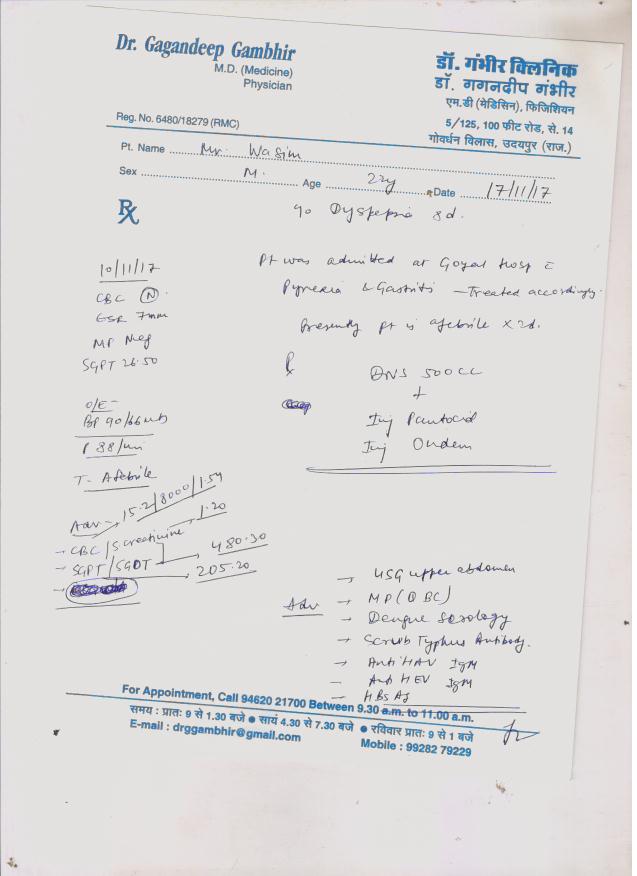 Dr. Gagandeep Gambhir
M.D. (Medicine)
Physician
Reg. No. 6480/18279 (RMC)
डॉ. गंभीर क्लिनिक
डॉ. गगनदीप गंभीर
एम.डी (मेडिसिन), फिजिशियन
5/125, 100 फीट रोड, से. 14
गोवर्धन विलास, उदयपुर (राज.)
Pt. Name Mr. Wasim
Sex M. Age 22y Date 17/11/17
Rx
Dyspepsia 8d.
Pt was admitted at Goyal Hosp c
Pyrexia & Gastritis – Treated accordingly.
Presently pt is afebrile x 2d.
10/11/17
CBC (N)
ESR 7mm
MP Neg
SGPT 26.50
O/E –
BP 90/66
P 88/min
T - Afebrile
Rx
DNS 500 CC
+
Inj Pantocid
Inj Ondem
Adv – 15.2/8000/1.54
→ CBC/S creatinine 1.20
→ SGPT/SGOT 480.30
205.20
Adv
→ USG upper abdomen
→ MP (QBC)
→ Dengue Serology
→ Scrub Typhus Antibody.
→ Anti HAV IgM
– Anti HEV IgM
– HBsAg
For Appointment, Call 94620 21700 Between 9.30 a.m. to 11.00 a.m.
समय : प्रातः 9 से 1.30 बजे ● सायं 4.30 से 7.30 बजे ● रविवार प्रातः 9 से 1 बजे
E-mail : drggambhir@gmail.com Mobile : 99282 79229